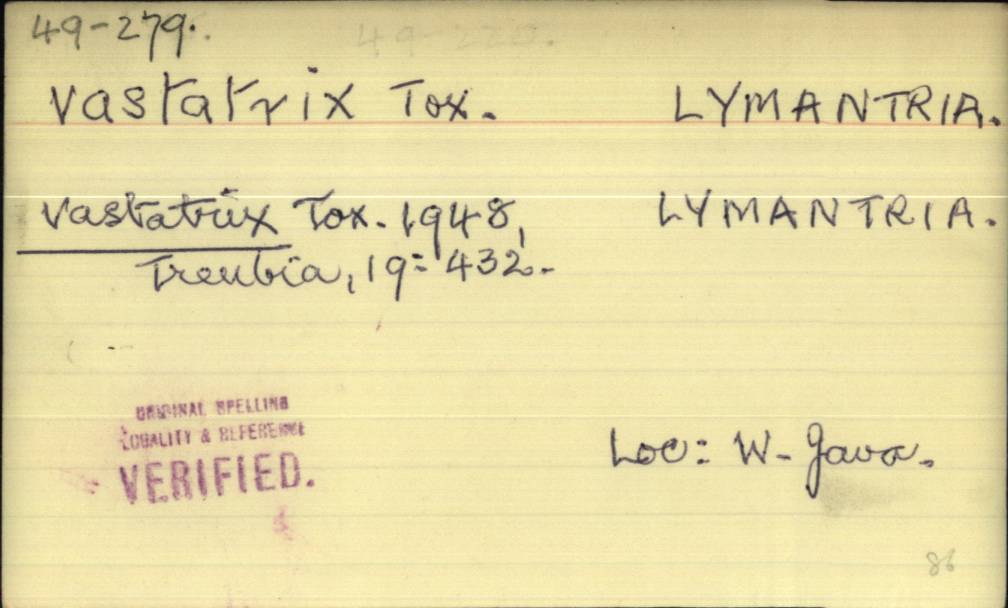 49-279.
49-220.
Vastatrix Tox. LYMANTRIA.
Vastatrix Tox. 1948, LYMANTRIA.
Treubia, 19: 432.
ORIGINAL SPELLING
LOCALITY & REFERENCE
VERIFIED.
Loc: W. Java.
86